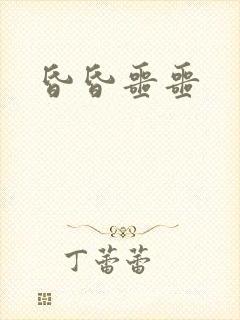 昏昏噩噩
丁蕾蕾